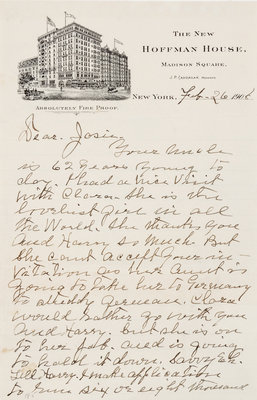 THE NEW
HOFFMAN HOUSE,
MADISON SQUARE,
ABSOLUTELY FIRE PROOF.
NEW YORK, Feb. 26 190
Dear. Josie,
Your Uncle
is 62 Years Young to
day. I had a nice Visit
with Clara. She is the
lovliest Girl in all
the World. She thanks you
and Harry so much. But
She cant accept your in-
vitation as her Aunt is
going to take her to Germany
to study German. Clara
would rather go with you
and Harry. but she is on
to her job. and is going
to hold it down.
Tell Harry. I make application
to six or eight thousand